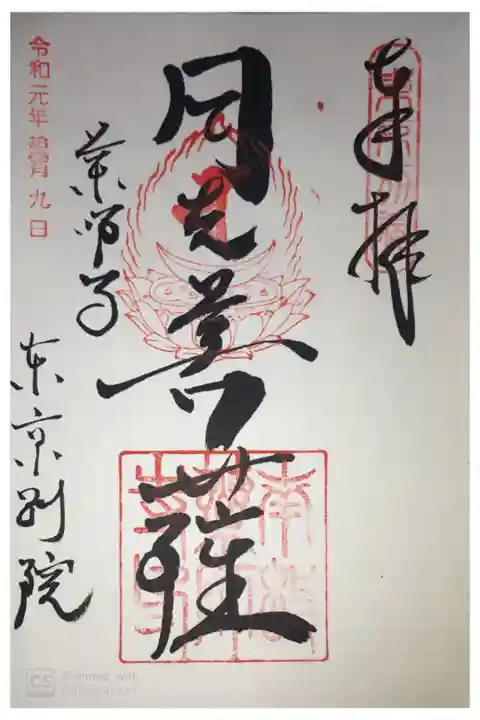 奉拝
月光菩薩
薬師寺
東京別院
令和元年 拾壹月 九日
CS Scanned with
CamScanner